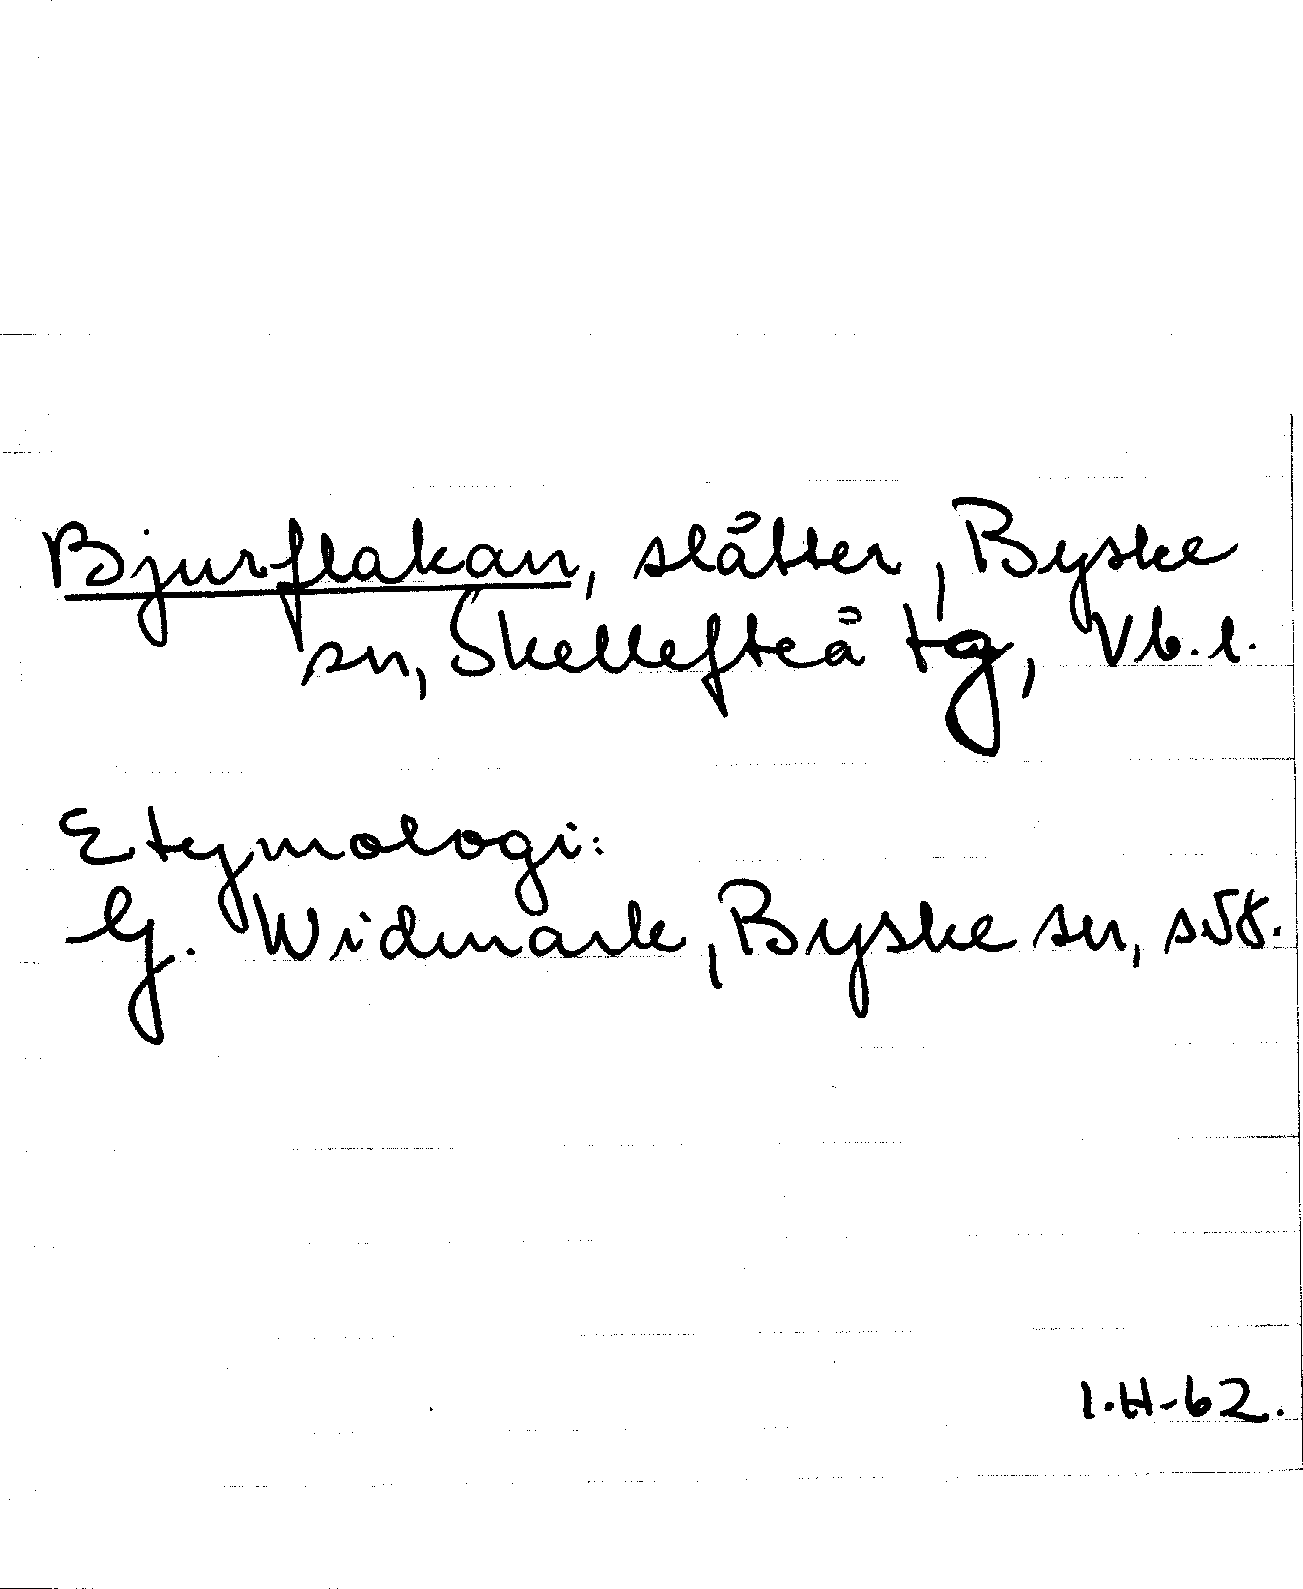 Bjurflakan, slåtter, Byske
sn, Skellefteå tg, Vb.l.
Etymologi:
G. Widmark, Byske sn,
I.H-62.